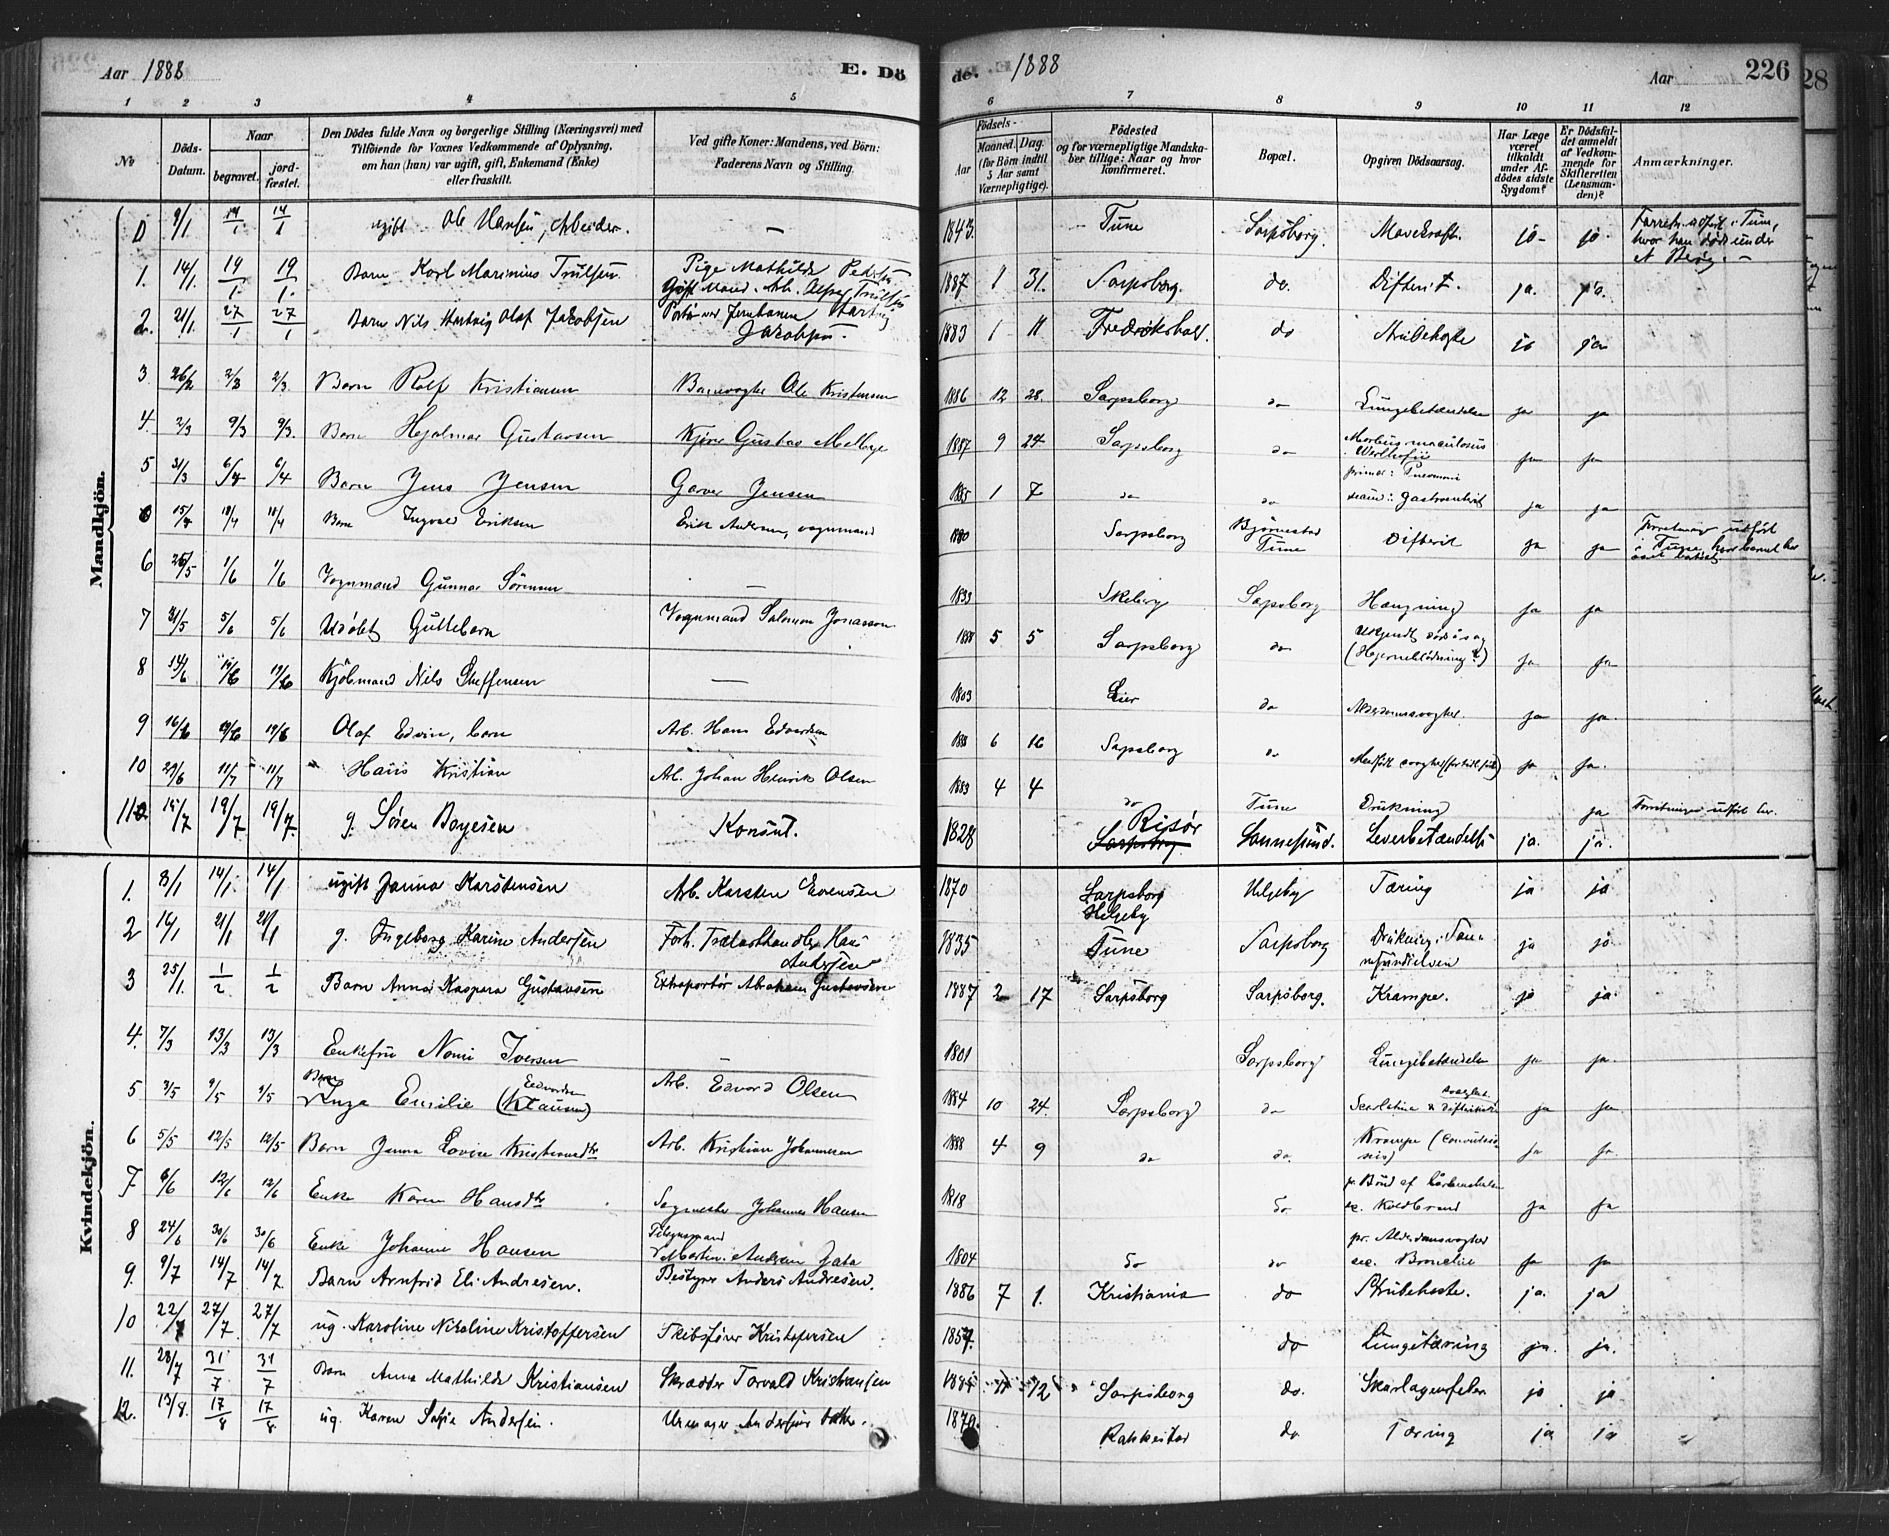 Aar 1888
E. Dö
de. 1888
Aar
226
1 2 3 4 5 6 7 8 9 10 11 12
No
Döds-Datum.
Naar
begravet.
jord-fæstet.
Den Dödes fulde Navn og borgerlige Stilling (Næringsvei) med
Tilföiende for Voxnes Vedkommende af Oplysning.
om han (hun) var ugift, gift, Enkemand (Enke)
eller fraskilt.
Ved gifte Koner: Mandens, ved Börn:
Faderens Navn og Stilling.
Födsels-
Aar
Maaned. Dag.
(for Börn indtil
5 Aar samt
Værnepligtige).
Födested
og for værnepligtige Mandska-
ber tillige: Naar og hvor
konfirmeret.
Bopæl.
Opgiven Dödsaarsag.
Har Læge
været
tilkaldt
under Af-
dödes sidste
Sygdom?
Er Dödsfal-
det anmeldt
af Vedkom-
mende for
Skifteretten
(Lensman-
den)?
Anmærkninger.
Mandkjön.
0 9/1 14/1 14/1 ugift Ole Hansen, Arbeider. — 1843. Tune Sarpsborg. Mavekræft. ja ja Forretn. udført i Tune,
hvor han døde under
1. 14/1 19/1. 19/1. Barn Karl Marinius Trulsen Pige Mathilde Pedersen
Gift Mand. Arb. Alfred Trulsen 1887 1 31. Sarpsborg. do. Difterit. ja. ja.
2. 21/1. 27/1 27/1 Barn Nils Hartvig Olaf Jakobsen Portør ved Jernbanen Hartvig
Jakobsen. 1883 1 11 Fredrikshald. do Strubehoste ja ja
3 26/2 2/3 2/3. Barn Rolf Kristiansen Banevogter Ole Kristensen 1886 12 28. Sarpsborg do Lungebetændelse ja ja
4. 2/3 9/3 9/3. Barn Hjalmar Gustavsen Kjører Gustav Melbye 1887 9 24 Sarpsborg do Morbus maculosus
Werlhofii ja ja
5 31/3 6/4 6/4 Barn Jens Jensen Garver Jensen 1 7 do do primær: Pneumoni
secund: Gastroenterit ja ja
15/4 18/4 18/4 Barn Ingvald Eriksen Erik Andersen, vognmand 1880 Sarpsborg Bjørnestad
Tune Difterit ja ja Forretning udført
i Tune, hvor barnet har
6 26/5 1/6 1/6 Vognmand Gunnar Sörensen — 1833 Skeberg Sarpsborg Hængning ja ja
7 31/5 5/6 5/6 Udöbt Guttebarn Vognmand Salomon Jonasson 1888 5 5 Sarpsborg do Ukjendt dödsårsag
(Hjerneblödning?) ja ja
8 14/6 19/6 19/6 Kjöbmand Nils Steffensen — 1803 Lier do Alderdomssvaghed. ja ja.
9 16/6 19/6 19/6 Olaf Edvin, barn Arb. Hans Edvardsen 1888 6 16 Sarpsborg do Medfödt svaghed ja ja.
10 29/6 11/7 11/7 Hans Kristian Arb. Johan Henrik Olsen 1883 4 4 do Tune Drukning ja Forretningen udført her.
11 15/7 19/7 19/7 g. Sören Boyesen Konsul. 1828 Risör
Sarpsborg Sannesund. Leverbetændelse ja. ja.
Kvindekjön.
1. 8/1 14/1. 14/1 ugift Janna Karstensen Arb. Karsten Evensen 1870 Sarpsborg
Helgeby Helgeby Tæring ja ja
2 16/1 21/1 21/1 g. Ingeborg Karine Andersen Forh. Trælasthandler Hans
Andersen 1835 Tune Sarpsborg Drukning i Sanne-
sundselven ja ja
3 25/1. 1/2 1/2 Barn Anna Kaspara Gustavsen Extraportör Abraham Gustavsen 1887 2 17 Sarpsborg Sarpsborg. Krampe. ja ja.
4. 7/3 13/3 13/3 Enkefru Nomi Iversen — 1801 Sarpsborg Lungebetændelse ja ja.
5 3/5 9/5 9/5 Barn
Inga Emilie (Klausen) Edvardsen Arb. Edvard Olsen 1884 10 24. Sarpsborg do Scarlatina & svælget
difterit ja ja
6 5/5 12/5 12/5 Barn Janna Lovise Kristiansdtr Arb. Kristian Johannesen 1888 4 9 do do. Krampe (Convulsio-
nes) ja ja.
7 6/6 12/6 12/6 Enke Karen Hansdtr Sagmester Johannes Hansen 1818 do p. Brud af Lårbenshalsen
sec. Koldbrand ja ja
8 24/6 30/6 30/6 Enke Johanne Hansen Martin Andersen 1804 do do pr. Alderdomssvaghed
sec. Bronchit ja ja
9. 9/7 14/7 14/7. Barn Arnfrid Eli Andresen. Bestyrer Anders Andresen. 1886 7 1. Kristiania do Strubehoste. ja. ja
10 22/7 27/7 27/7 ug. Karoline Nikoline Kristoffersen Skibsfører Kristofersen 1857. do Lungetæring ja. ja.
11. 28/7 31/7 31/7 Barn Anna Mathilde Kristiansen Skrædder Torvald Kristiansen 1884 12 Sarpsborg do. Skarlagensfeber ja ja
12. 13/8. 17/8 17/8 ug. Karen Sofie Andersen. Urmager Andersens datter. 1870. Rakkestad do Tæring ja ja